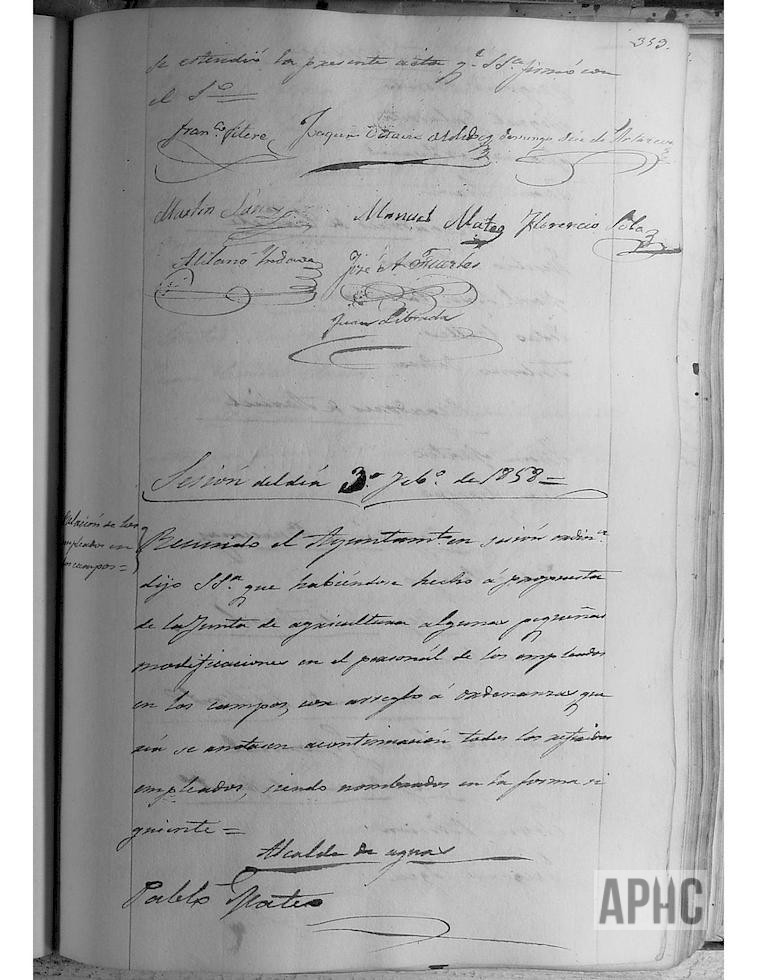 353.
se estendió la presente acta q.e SSa firmó con
el Sº
Fran.co Pitere Joaquin Domingo de
Martin Sanz Manuel Mateo Florencio Pola
José A. Fuertes
Juan Librada
Sesión del día 3 de Febº. de 1858=
Relación de los
empleados en
los campos=
Reunido el Ayuntamt.o en sesión ordin.a
dijo SSa. que habiéndose hecho á propuesta
de la Junta de agricultura algunas pequeñas
modificaciones en el personál de los empleados
en los campos, con arreglo á ordenanzas, que
se anotasen acontinuación todos los referidos
empleados, siendo nombrados en la forma si
guiente=
Alcalde de aguas
Pablo Mateo
APHC